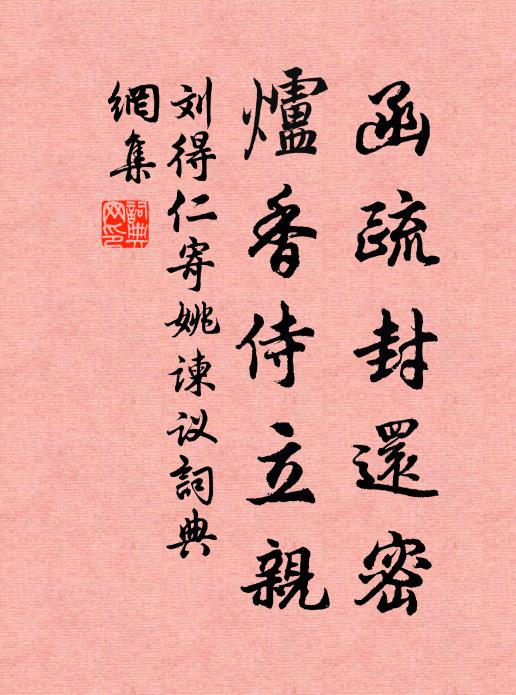 函疏封還密
爐香侍立親
刘得仁寄姚谏议詞典
網集
詞典
网印